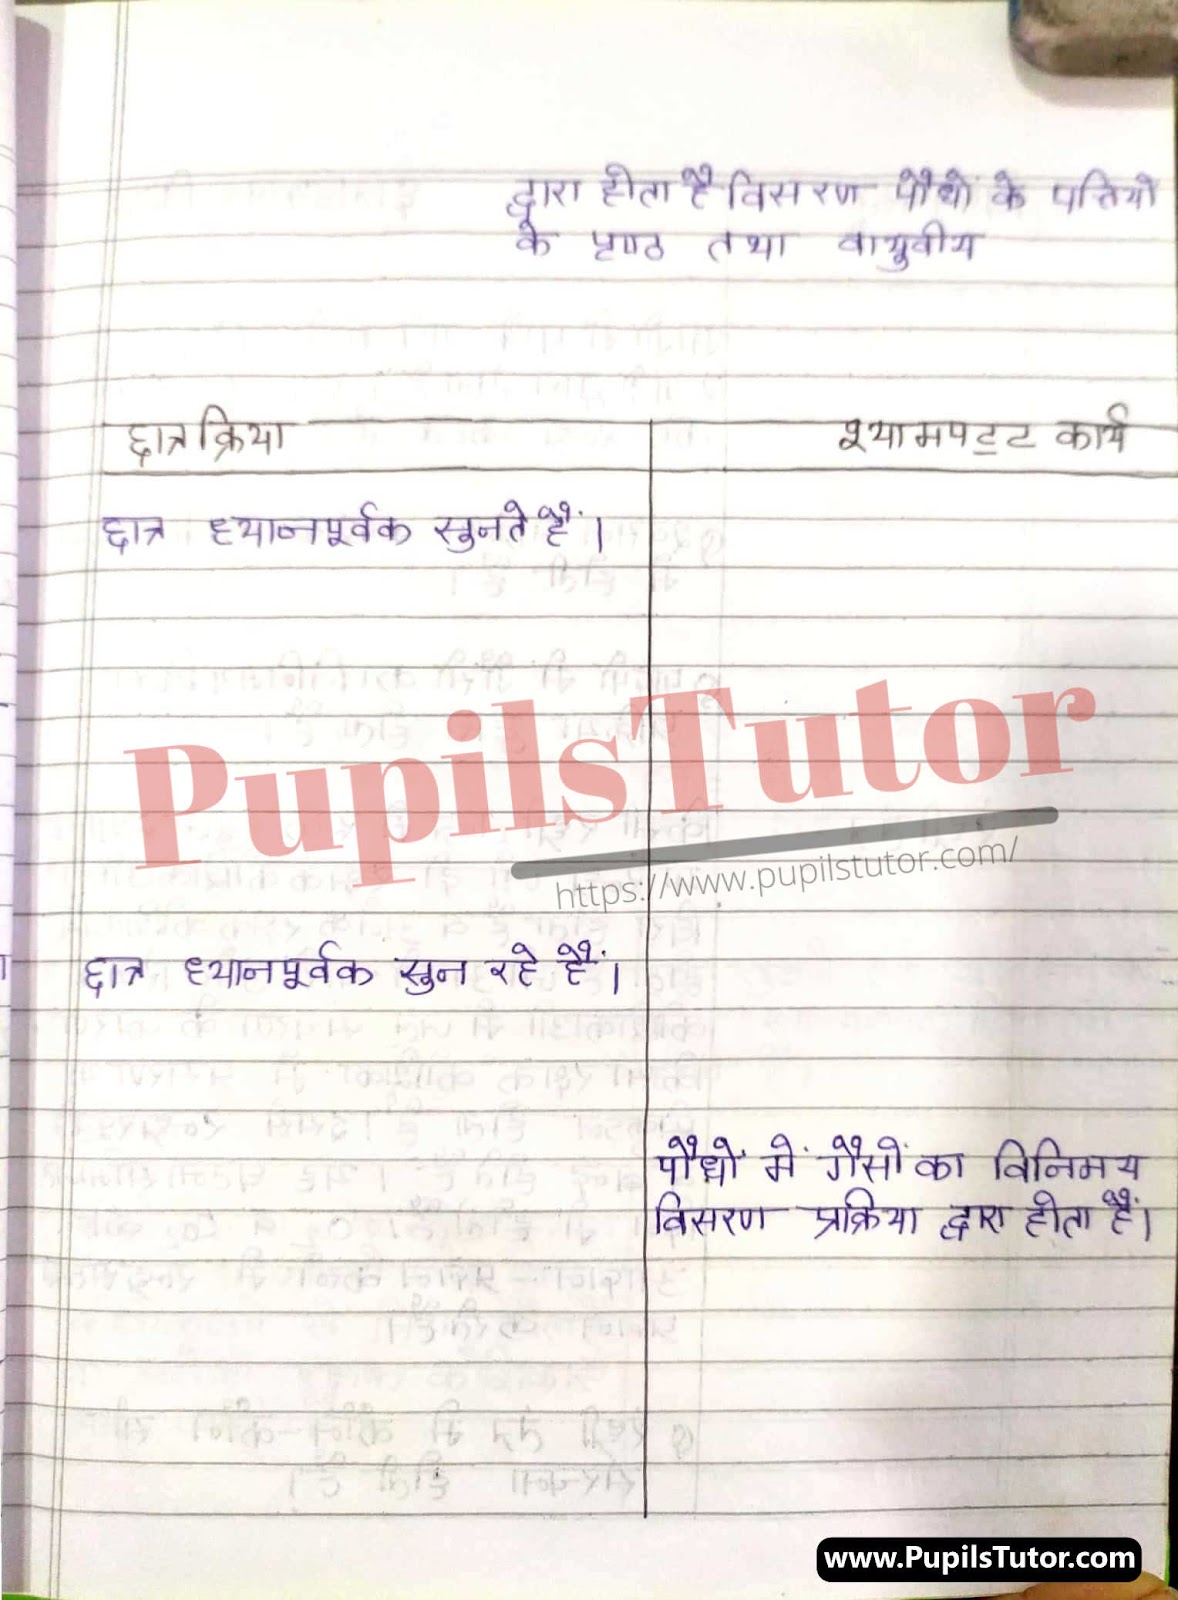 द्वारा होता है विसरण पौधों के पत्तियों
के पृष्ठ तथा वायुवीय
छात्र क्रिया
श्यामपट्ट कार्य
छात्र ध्यानपूर्वक सुनते हैं।
PupilsTutor
https://www.pupilstutor.com/
छात्र ध्यानपूर्वक सुन रहे हैं।
पौधों में गैसों का विनिमय
विसरण प्रक्रिया द्वारा होता हैं।
www.PupilsTutor.com